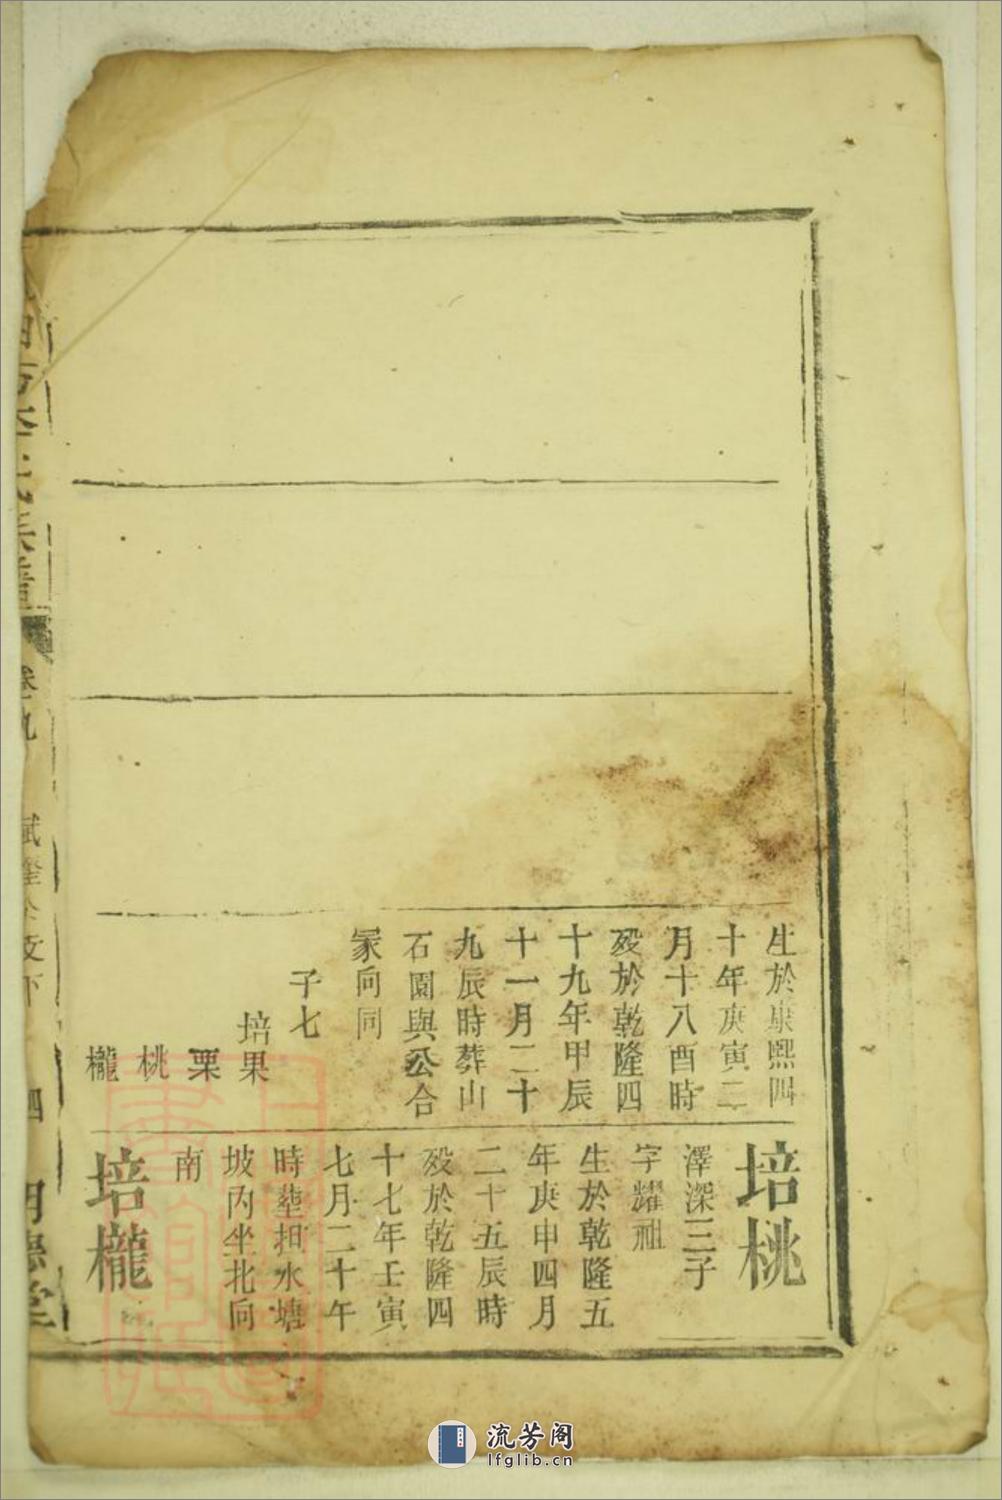 生於康熙四
十年庚寅二
月十八酉時
殁於乾隆四
十九年甲辰
十一月二十
九辰時葬山
石園與公合
冢向同
子七
培果
栗
桃
櫳
培桃
澤深三子
字耀祖
生於乾隆五
年庚申四月
二十五辰時
殁於乾隆四
十七年壬寅
七月二十午
時塟担水塘
坡丙坐北向
南
培櫳
卷九
四
明德堂
流芳阁
lfglib.cn